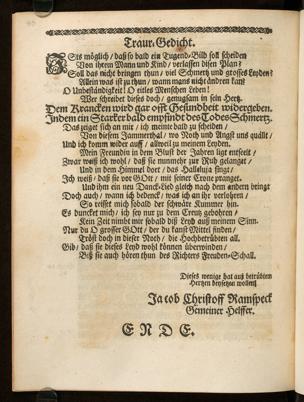 Traur-Gedicht.
Ists möglich / daß so bald ein Tugend-Bild soll scheiden
Von ihrem Mann und Kind / verlassen disen Plan?
Soll das nicht bringen thun / viel Schmertz und grosses Leyden?
Allein was ist zu thun / wann mans nicht ändren kan?
O Unbeständigkeit! O eitles Menschen Leben!
Wer schreibet dieses doch / genugsam in sein Hertz.
Dem Krancken wird gar offt Gesundheit widergeben.
Indem ein Starcker bald empfindt des Todes Schmertz.
Das zeiget sich an mir / ich meinte bald zu scheiden /
Von diesem Jammerthal / wo Noth und Angst uns quält /
Und ich komm wider auff / allweil zu meinem Leyden.
Mein Freundin in dem Blust der Jahren ligt entseelt /
Zwar weiß ich wohl / daß sie nunmehr zur Ruh gelanget /
Und in dem Himmel dort / das Halleluja singt:
Ich weiß / daß sie vor Gott / mit seiner Crone pranget.
Und ihm ein neu Danck-Lied gleich nach dem andern bringt
Doch auch / wann ich bedenck / was ich an ihr verlohren /
So reisset mich sobald der schwäre Kummer hin.
Es duncket mich / ich sey nur zu dem Creutz gebohren /
Kein Zeit nimbt mir sobald diß Leyd auß meinem Sinn.
Nur du O grosser Gott / der du kanst Mittel finden /
Tröst doch in dieser Noth / die Hochbetrübten all.
Gib / daß sie dieses Leyd wohl können überwinden /
Biß sie auch hören thun des Richters Freuden-Schall.
Dieses wenige hat auß betrübtem
Hertzen beysetzen wollen
Jacob Christoff Ramspeck
Gemeiner Helffer.
ENDE.